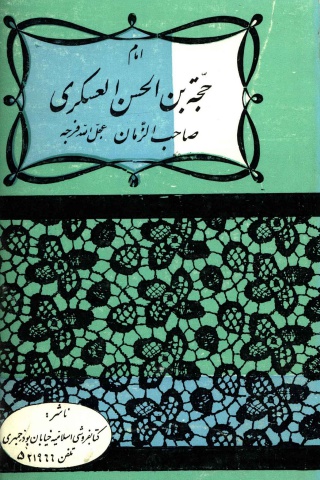 امام
حجّة بن الحسن العسکری
صاحب الزّمان عجل الله فرجه
ناشر:
کتابفروشی اسلامیه خیابان بوذرجمهری
تلفن ۵۲۱۹۶۶